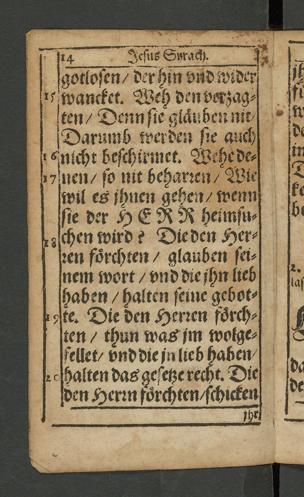 14 Jesus Syrach.
gotlosen / der hin vnd wider
15 wancket. Weh den verzag-
ten / Denn sie gläuben nit /
Darumb werden sie auch
16 nicht beschirmet. Wehe de-
17 nen / so nit beharren / Wie
wil es jhnen gehen / wenn
sie der HERR heimsu-
18 chen wird? Die den Her-
ren förchten / glauben sei-
nem wort / vnd die jhn lieb
haben / halten seine gebot-
19 te. Die den Herren förch-
ten / thun was jm wolge-
fellet / vnd die jn lieb haben /
20 halten das gesetze recht. Die
den Herrn förchten / schicken
jhr